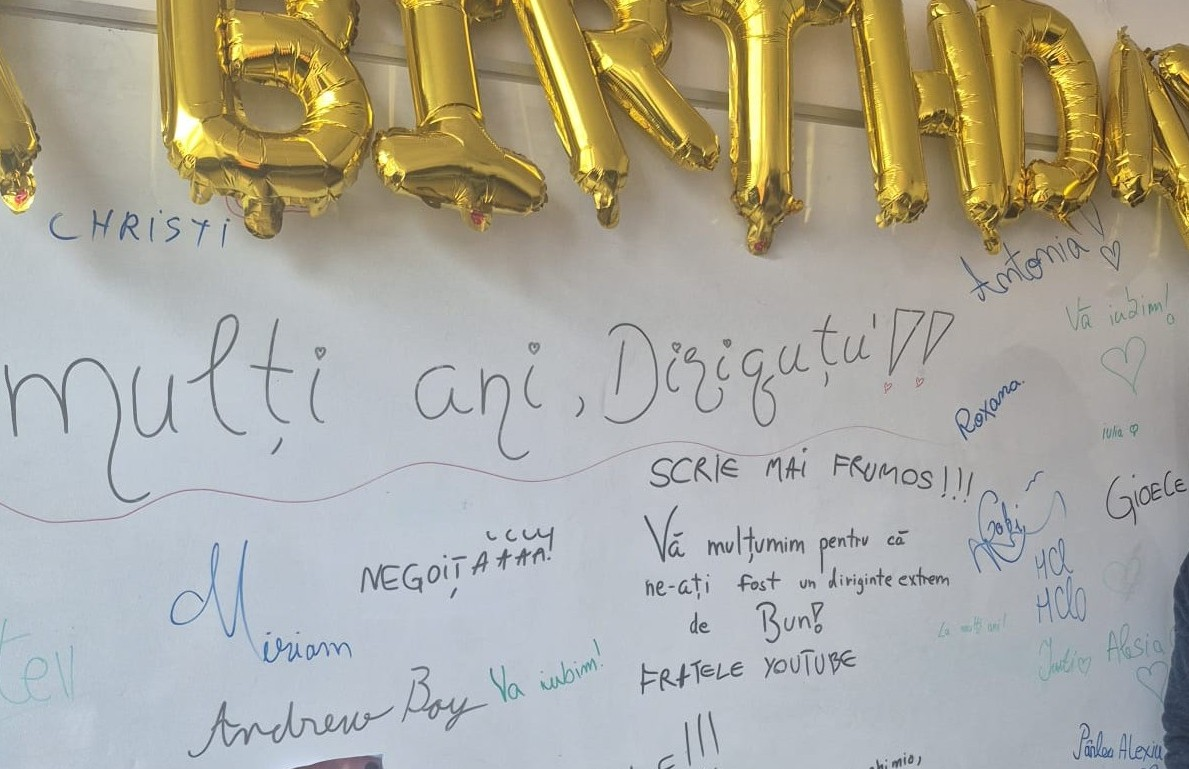 BIRTHDA
CHRISTI
Antonia!
Vă iubim!
mulți ani, Diriguțu'!!
Roxana.
iulia
SCRIE MAI FRUMOS!!!
GiOECE
Gabi
Vă mulțumim pentru că
ne-ați fost un diriginte extrem
de Bun!
NEGOIȚAAAA!
HCl
HClO
Miriam
La mulți ani!
Alesia
FRATELE YOUTUBE
Va iubim!
Andrew Boy
!!!